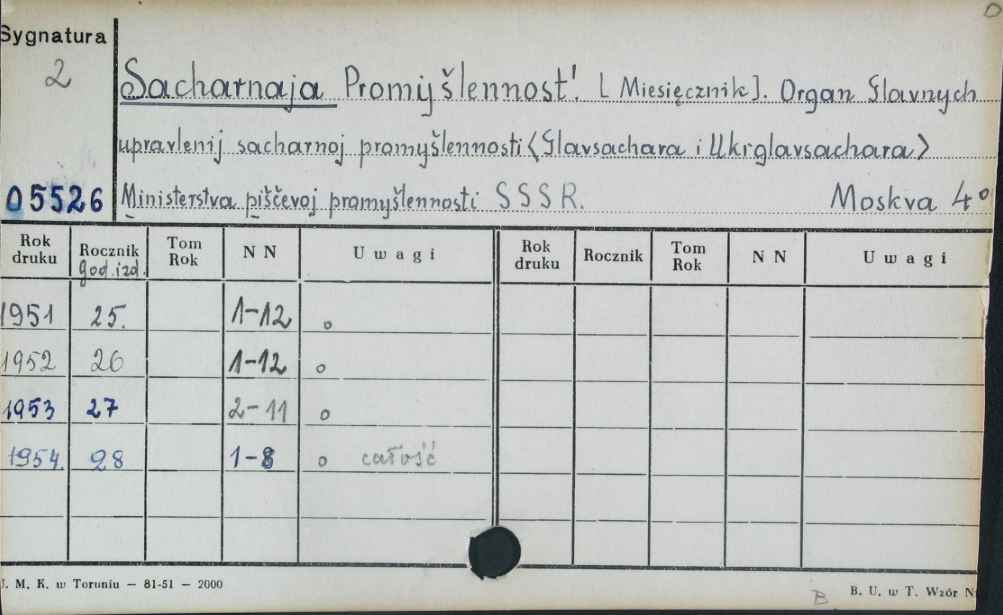 O
Sygnatura
2
Sacharnaja Promyšlennost'. [Miesięcznik]. Organ Glavnych
upravlenij sacharnoj promyšlennosti <Glavsachara i Ukrglavsachara>
05526 Ministerstva piščevoj promyšlennosti SSSR. Moskva 4°
Rok druku Rocznik god. izd. Tom Rok N N Uwagi Rok druku Rocznik Tom Rok N N Uwagi
1951 25. 1-12 o
1952 26 1-12 o
1953 27 2-11 o
1954. 28 1-8 o całość
J. M. K. w Toruniu — 81-51 — 2000
B B. U. w T. Wzór N